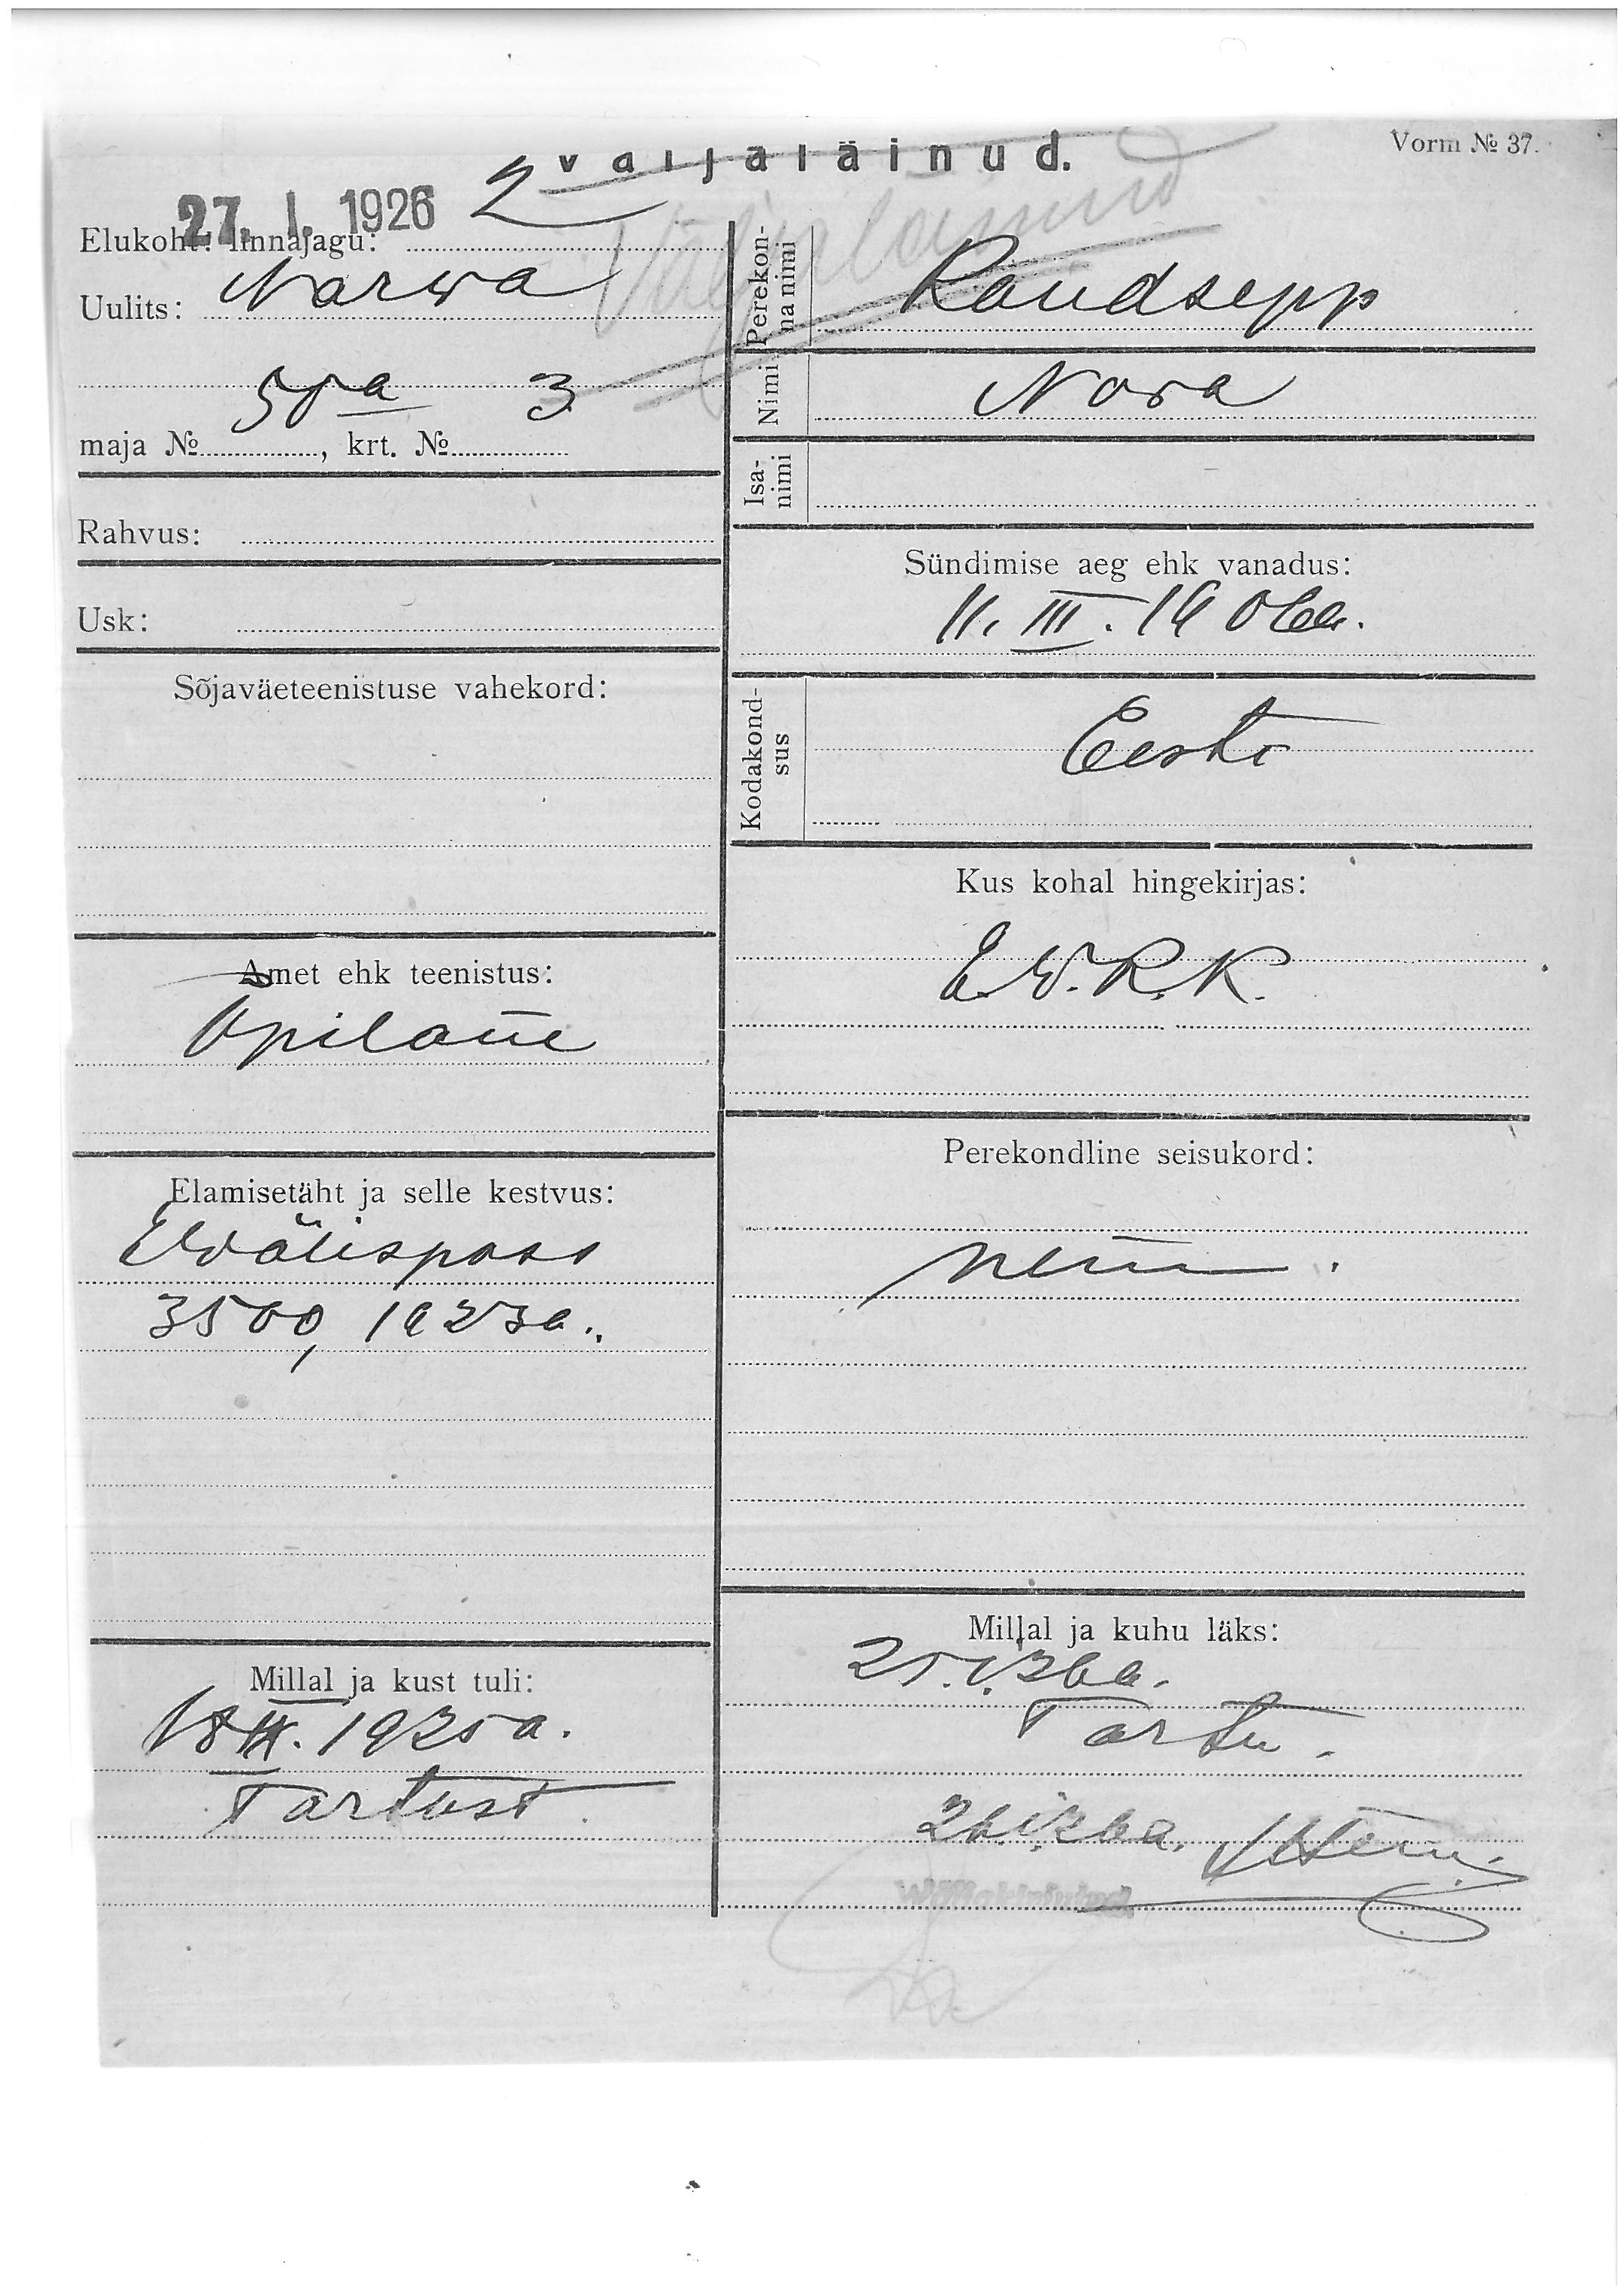 Vorm № 37.
väljaläinud.
27. I. 1926
2
Väljaläinud
Elukoht: linnajagu:
Uulits: Narwa
50a 3
maja № , krt. №
Rahvus:
Usk:
Sõjaväeteenistuse vahekord:
Amet ehk teenistus:
Õpilane
Elamisetäht ja selle kestvus:
EW välispass
3500, 1923a.
Millal ja kust tuli:
1925a.
Tartust
Perekonna nimi Raudsepp
Nimi Nora
Isanimi
Sündimise aeg ehk vanadus:
11. III.
Kodakondsus Eesti
Kus kohal hingekirjas:
E.W.R.K.
Perekondline seisukord:
neiu.
Millal ja kuhu läks:
25.I.26a.
Tartu.
26.I.26a.